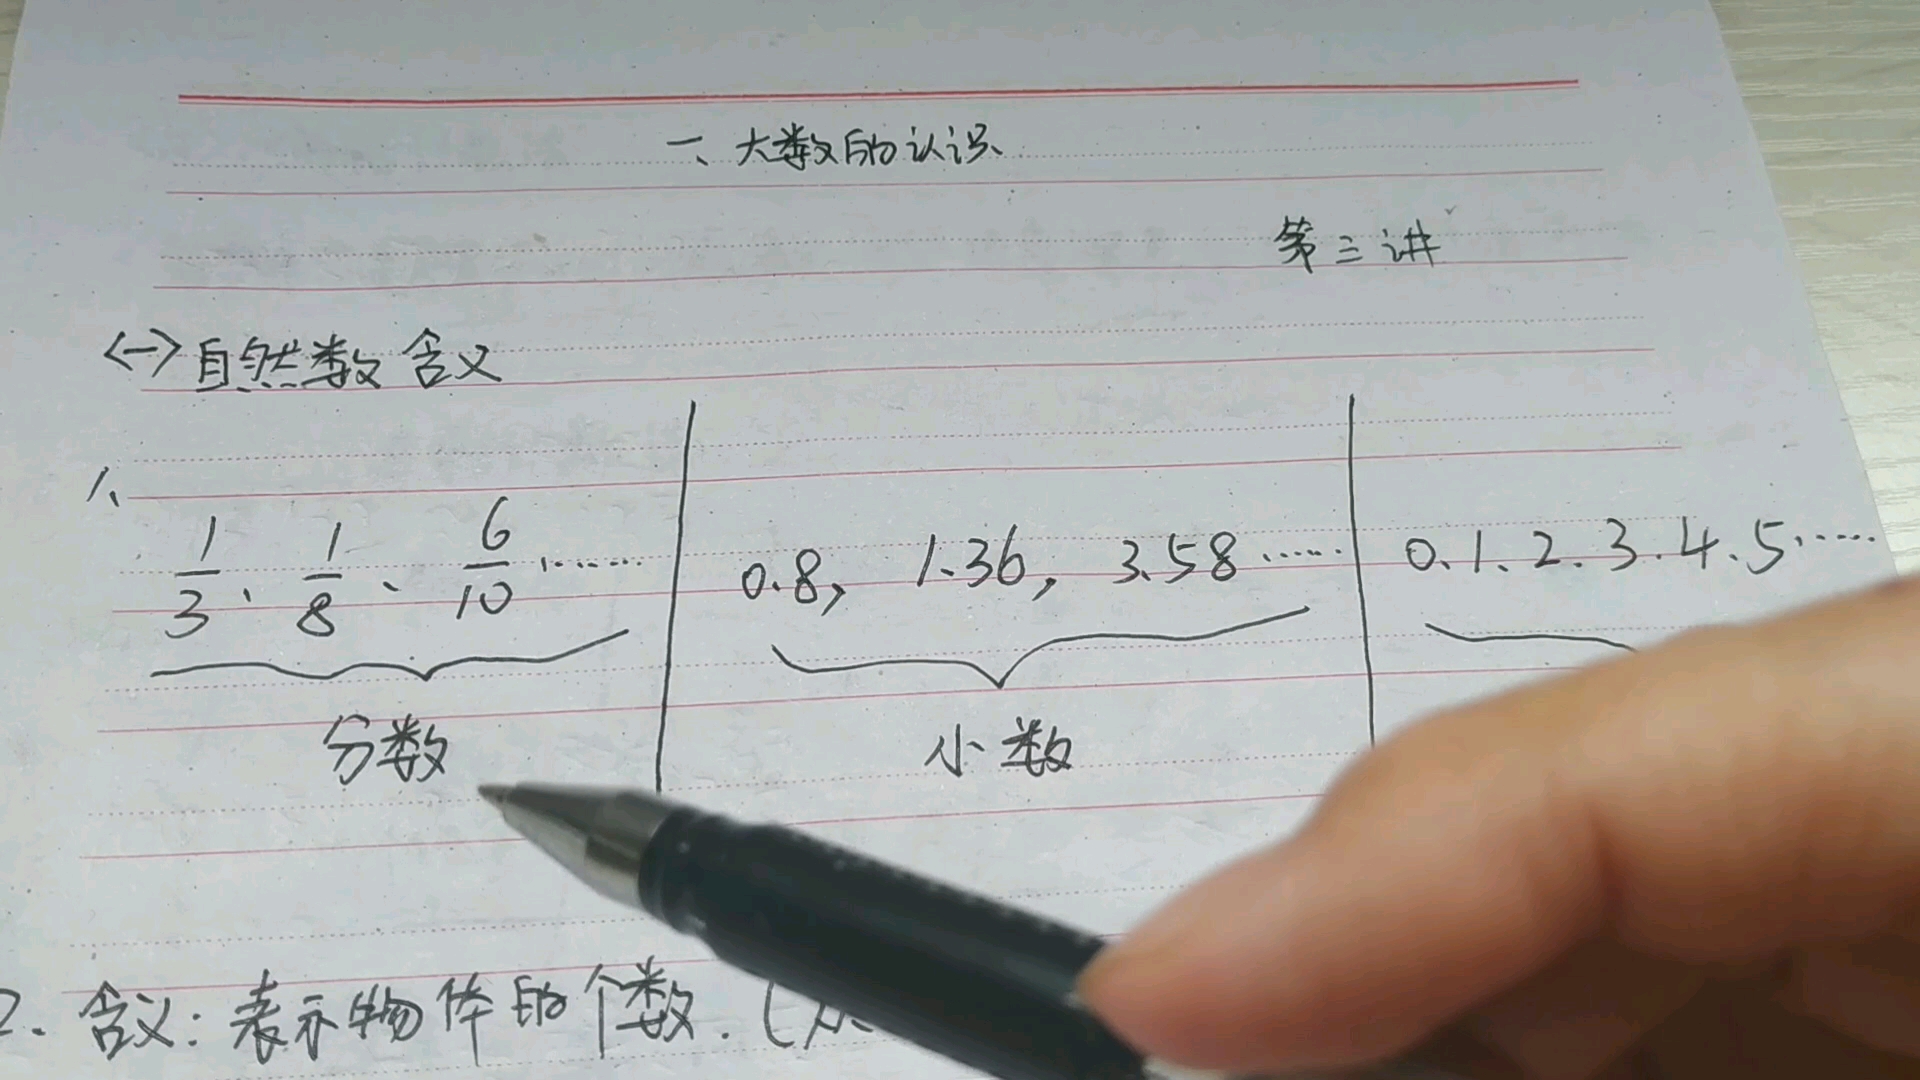 一、大数的认识
第三讲
<一>自然数含义
1、
1/3、1/8、6/10…… 0.8, 1.36, 3.58…… 0.1.2.3.4.5……
分数 小数
2. 含义: 表示物体的个数. (从